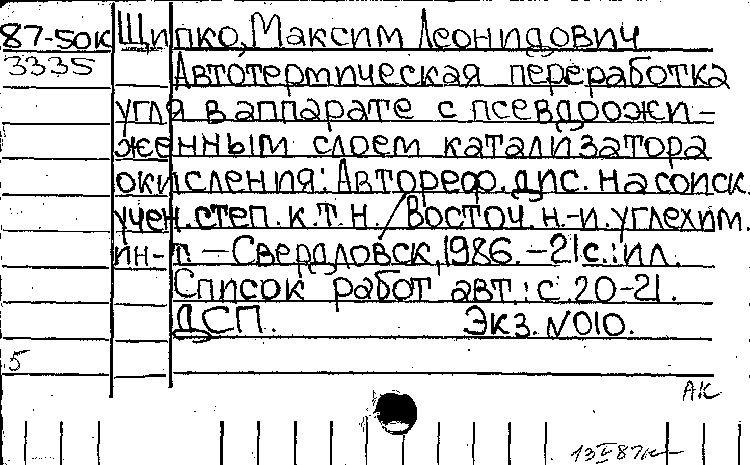 87-50к Щипко, Максим Леонидович
3335 Автотермическая переработка
угля в аппарате с псевдоожи-
женным слоем катализатора
окисления: Автореф. дис. на соиск.
учен. степ. к.т.н. / Восточ. н.-и. углехим.
ин-т. – Свердловск, 1986. – 21 с.: ил.
Список работ авт.: с. 20-21.
ДСП. Экз. N 010.
5
АК